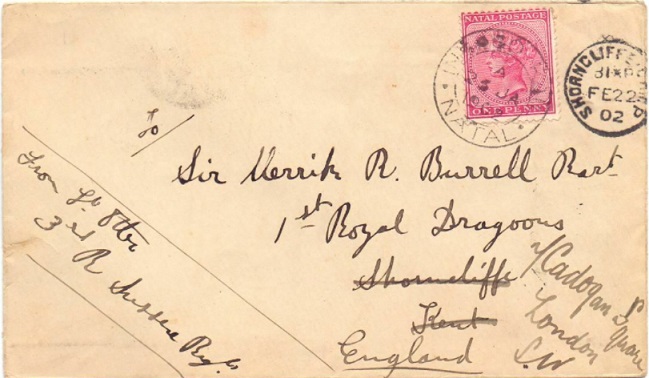 NATAL POSTAGE
ONE PENNY
NATAL
SHORNCLIFFE CAMP
FE 22
02
To/
Sir Merrik R. Burrell Bart
1st Royal Dragoons
Shorncliffe
Kent
England
Cadogan Square
London
S.W
From Lt Otter
3rd R Sussex Regt